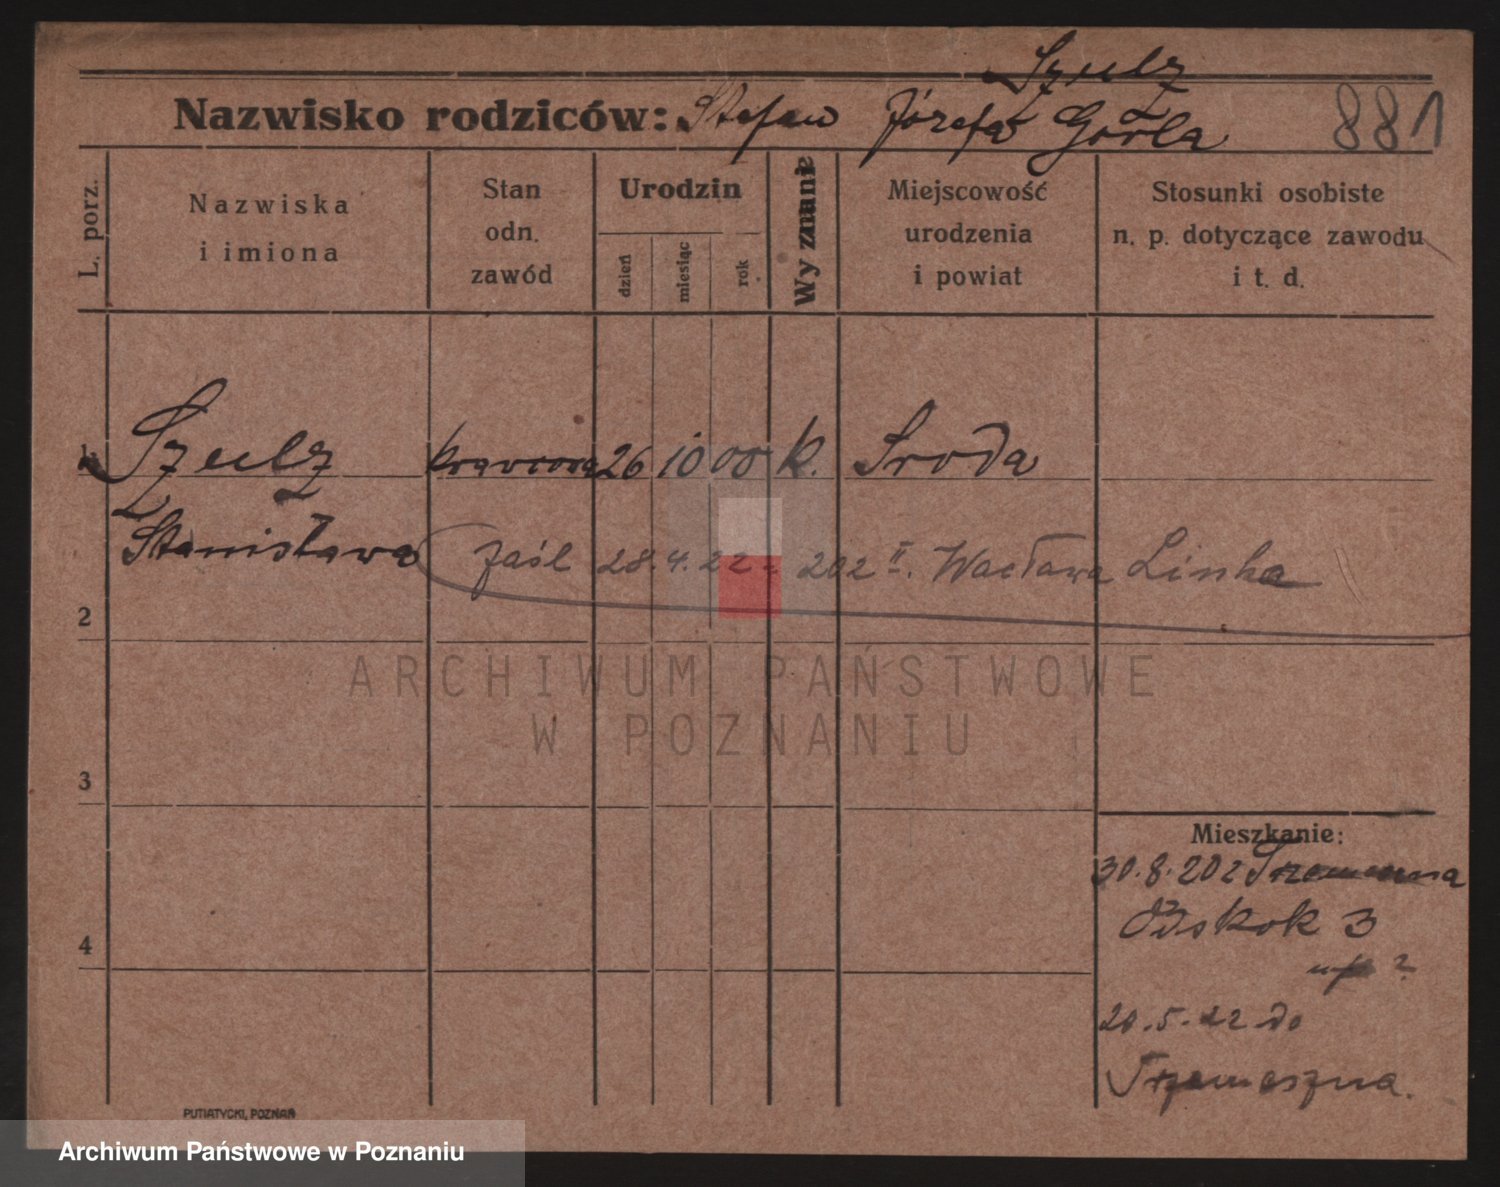 Szulz
Nazwisko rodziców: Stefan Józefa Gorla 881
L. porz.
Nazwiska
i imiona
Stan
odn.
zawód
Urodzin
dzień
miesiąc
rok
Wyznanie
Miejscowość
urodzenia
i powiat
Stosunki osobiste
n. p. dotyczące zawodu
i t. d.
1 Szulz krawcowa 26 10 00 k. Sroda
Stanisława zaśl 28.4.22 202 II. Wacława Linka
2
3
4
Mieszkanie:
30.8.202 Trzemeszna
3
?
20.5.22 do
Trzemeszna.
PUTIATYCKI, POZNAŃ
ARCHIWUM PAŃSTWOWE
W POZNANIU
Archiwum Państwowe w Poznaniu